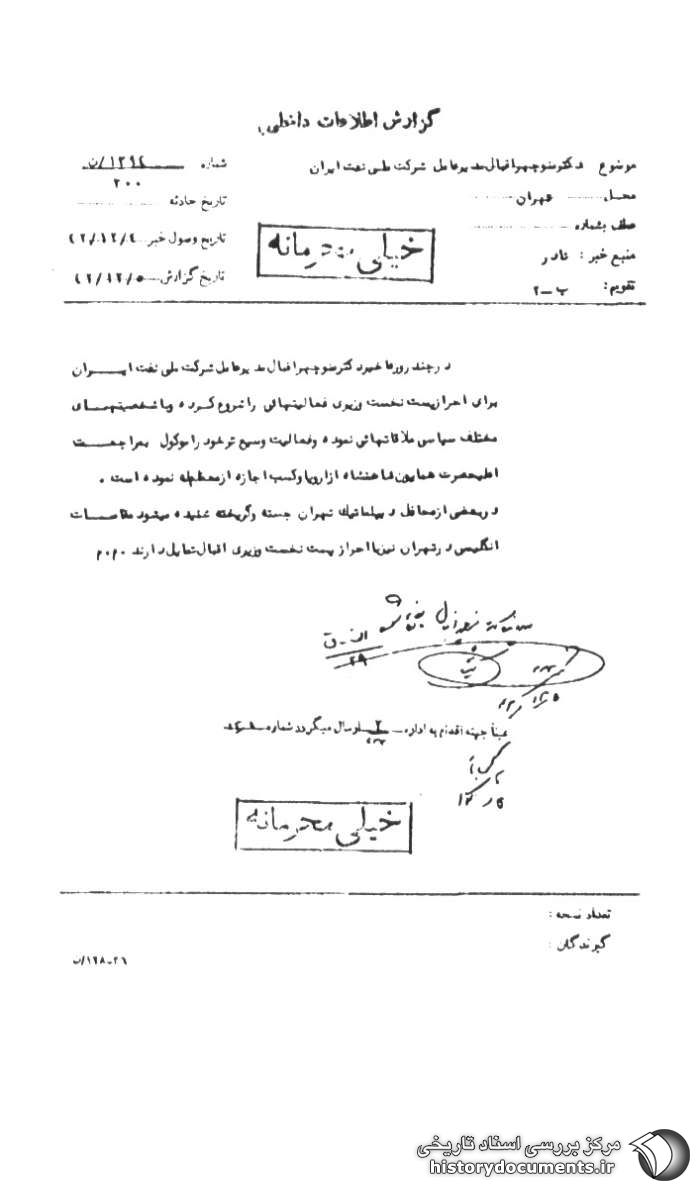 گزارش اطلاعات داخلی
موضوع دکتر منوچهر اقبال مدیرعامل شرکت ملی نفت ایران
شماره ۱۲۹۴/ن
۲۰۰
محل تهران
تاریخ حادثه
عطف بشماره
تاریخ وصول خبر ۴۲/۱۲/۴
خیلی محرمانه
منبع خبر : نادر
تاریخ گزارش ۴۲/۱۲/۵
تقویم: ب-۲
در چند روزه اخیر دکتر منوچهر اقبال مدیرعامل شرکت ملی نفت ایران
برای احراز پست نخست وزیری فعالیتهائی را شروع کرده و با شخصیتهای
مختلف سیاسی ملاقاتهائی نموده و فعالیت وسیع تر خود را موکول بمراجعت
اعلیحضرت همایون شاهنشاه از اروپا و کسب اجازه از معظم‌له نموده است .
در بعضی از محافل دیپلماتیک تهران جسته و گریخته شنیده میشود مقامات
انگلیسی در تهران نیز با احراز پست نخست وزیری اقبال تمایل دارند
الف-ق
۲۹
عیناً جهت اقدام به اداره ارسال میگردد شماره
خیلی محرمانه
تعداد نسخه :
گیرندگان :
۲۶-۱۶۸/ن
مرکز بررسی اسناد تاریخی
historydocuments.ir